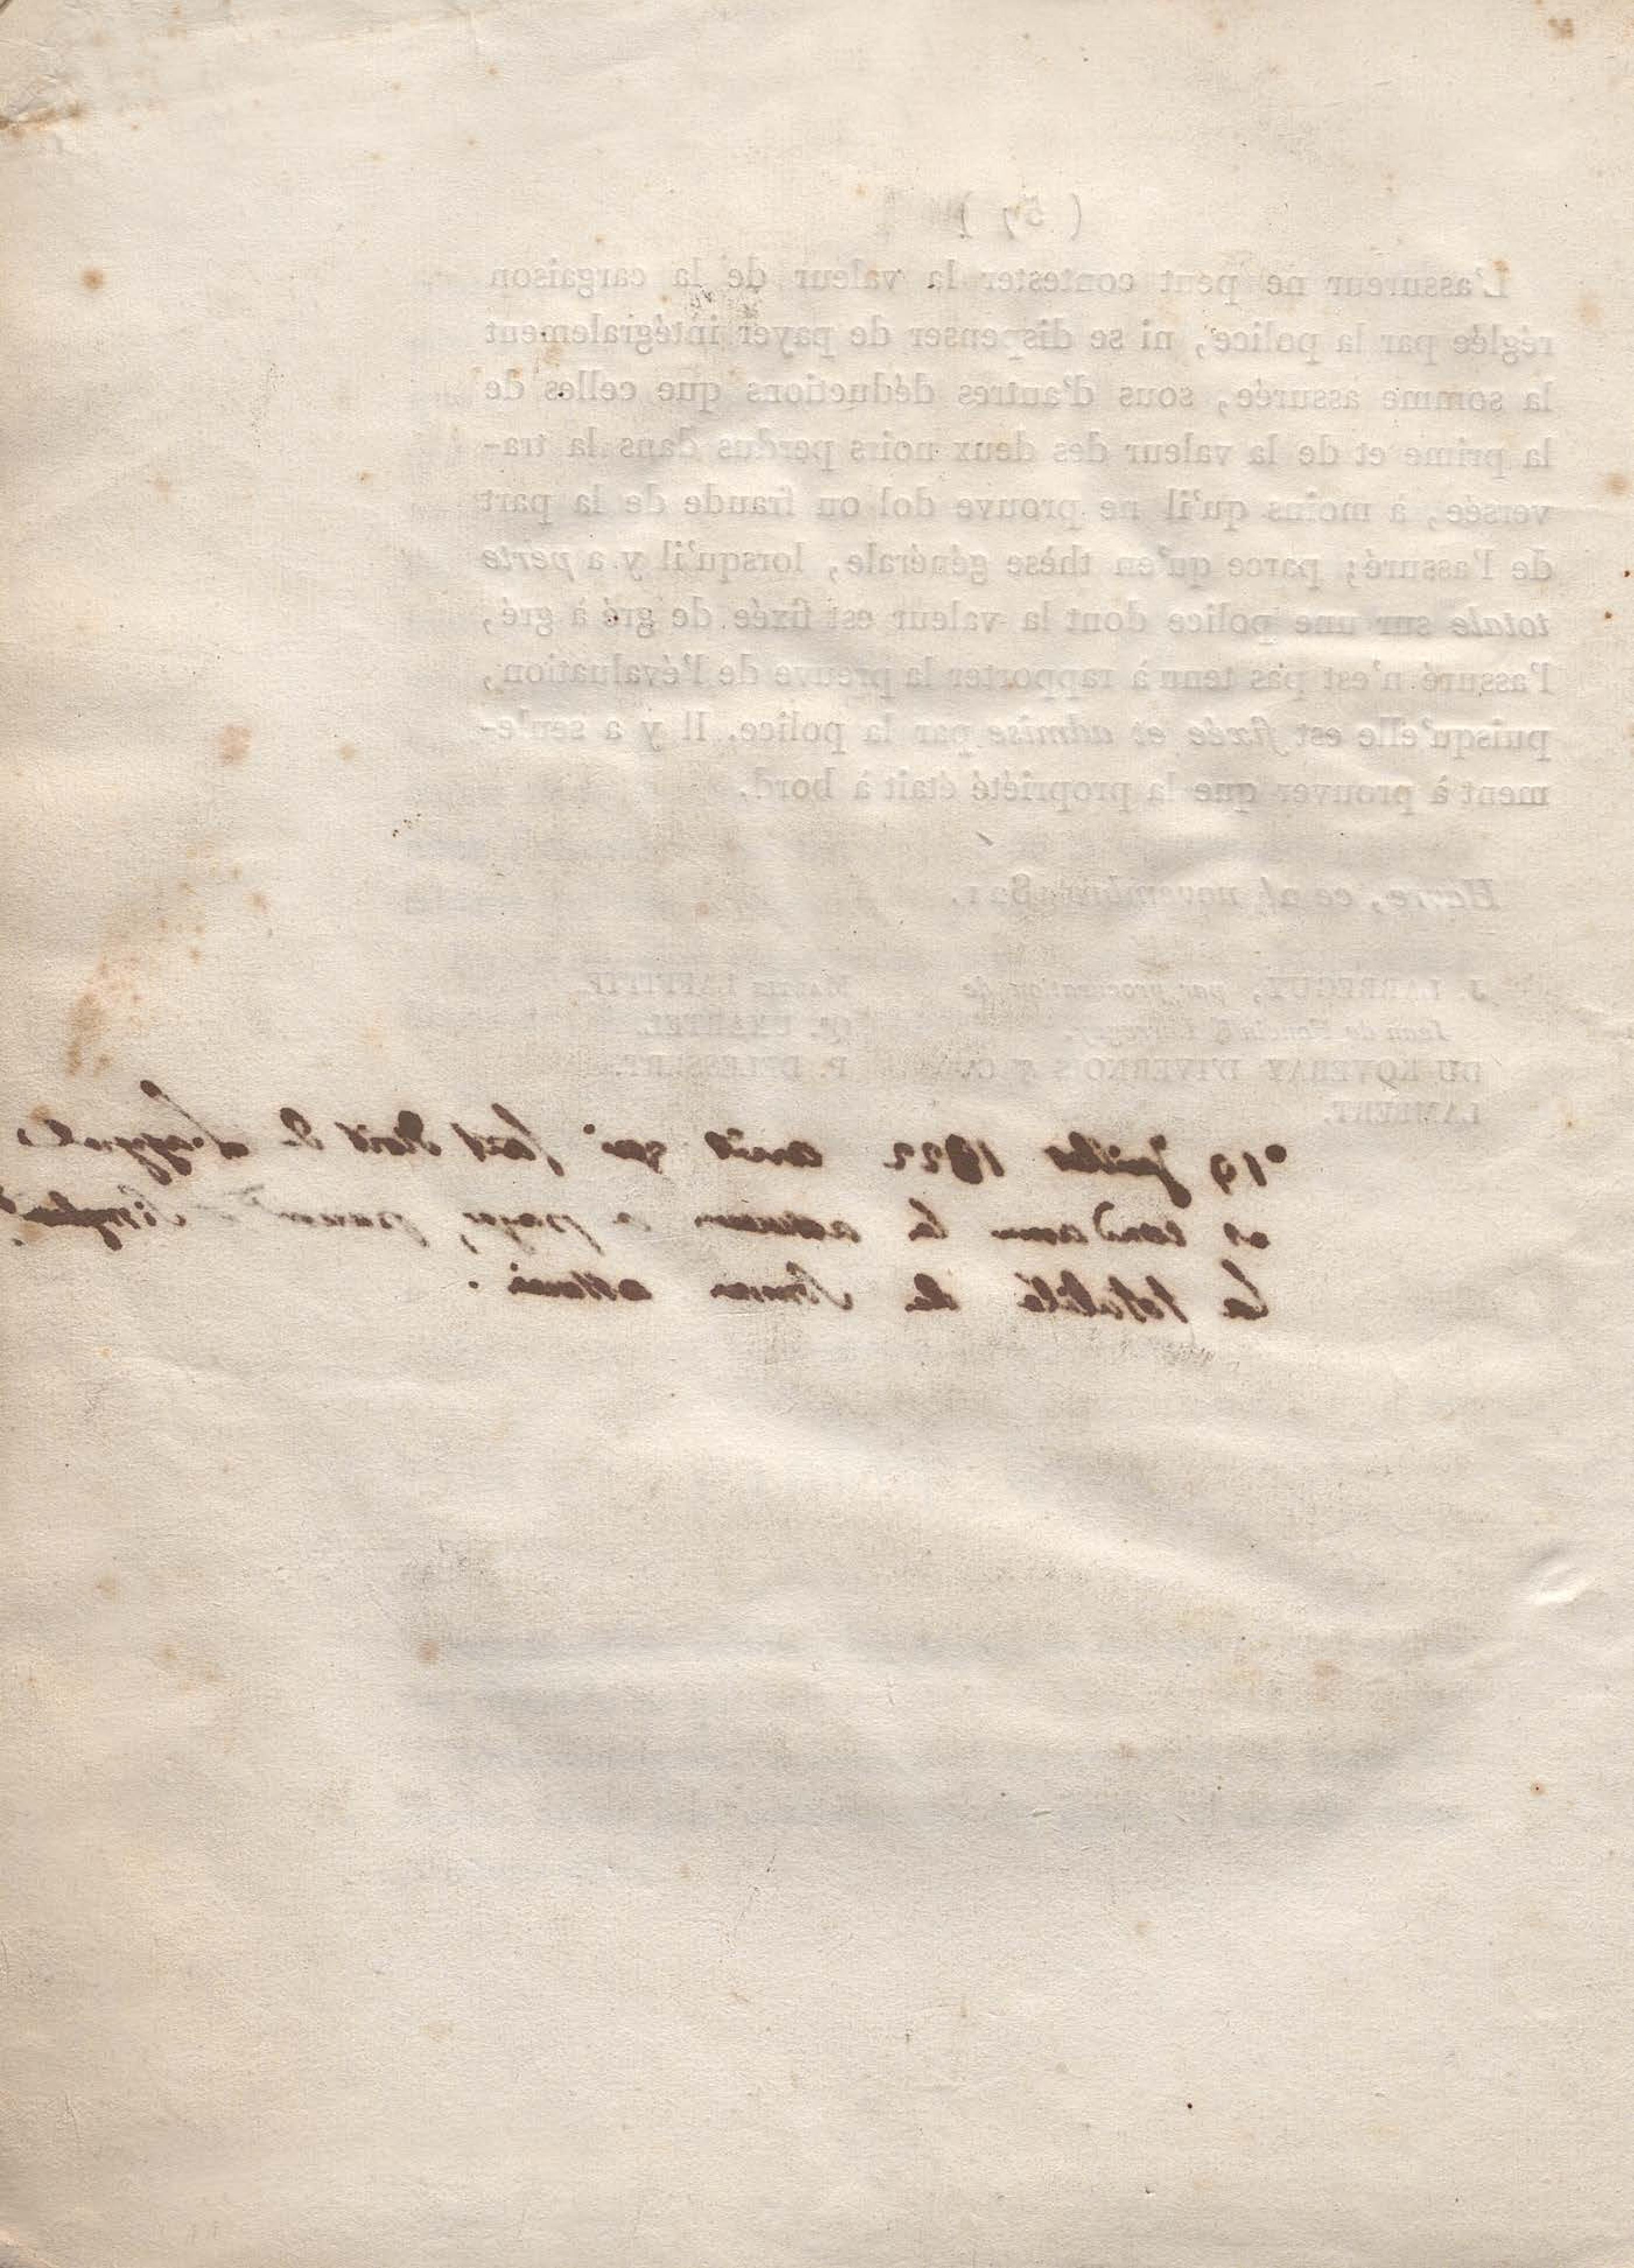 ( 57 )
L'assureur ne peut contester la valeur de la cargaison
réglée par la police, ni se dispenser de payer intégralement
la somme assurée, sous d'autres déductions que celles de
la prime et de la valeur des deux noirs perdus dans la tra-
versée, à moins qu'il ne prouve dol ou fraude de la part
de l'assuré; parce qu'en thèse générale, lorsqu'il y a perte
totale sur une police dont la valeur est fixée de gré à gré,
l'assuré n'est pas tenu à rapporter la preuve de l'évaluation,
puisqu'elle est fixée et admise par la police. Il y a seule-
ment à prouver que la propriété était à bord.
Havre, ce novembre 1821.
J. LARREGUY, par procuration de
Jean de
DU ROVERAY D'IVERNOIS &
LAMBERT.
MARTIN LAFFITTE
P. DELESSERT.
19 juillet 1822 arrêt qui fait droit
et condamne les assureurs a payer,
la totalité de somme assurée.